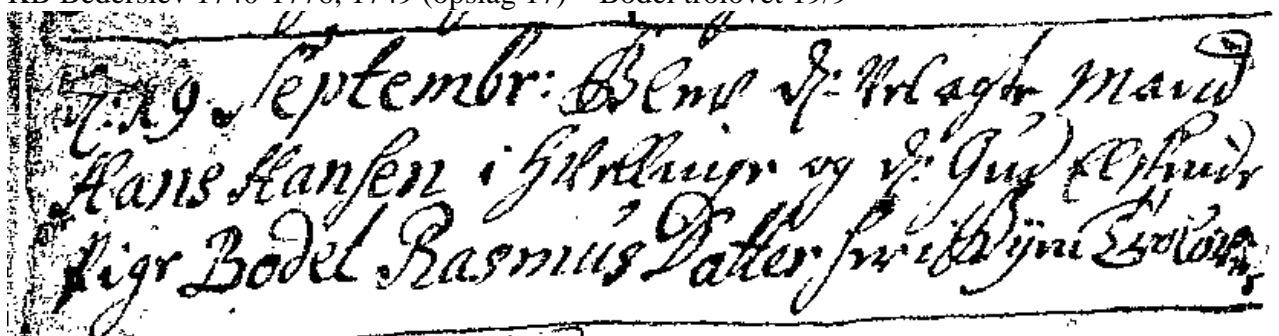 KB Bederslev 1740-1776, 1749 (opslag 17) – Bodel trolovet 19/9
D: 19. Septembr: Blev d: Velagte Mand
Hans Hansen i Hvellinge og d: Gud Elskende
Pige Bodel Rasmus Datter her i Byen Trolovet